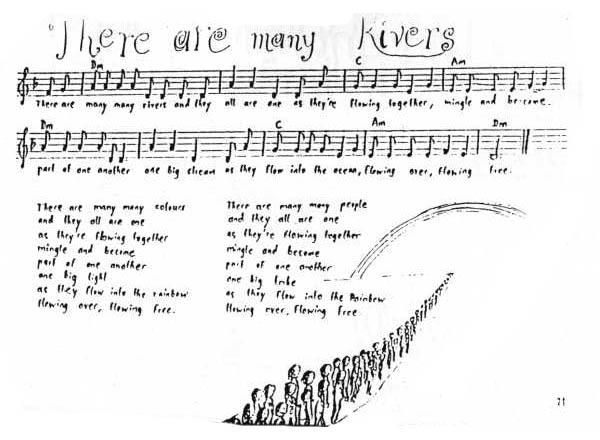 There are many Rivers
Dm C Am
There are many many rivers and they all are one as they're flowing together, mingle and become.
Dm C Am Dm
part of one another one big stream as they flow into the ocean, flowing over, flowing free.
There are many many colours
and they all are one
as they're flowing together
mingle and become
part of one another
one big light
as they flow into the rainbow
flowing over, flowing free.
There are many many people
and they all are one
as they're flowing together
mingle and become
part of one another
one big tribe
as they flow into the Rainbow
flowing over, flowing free.
71